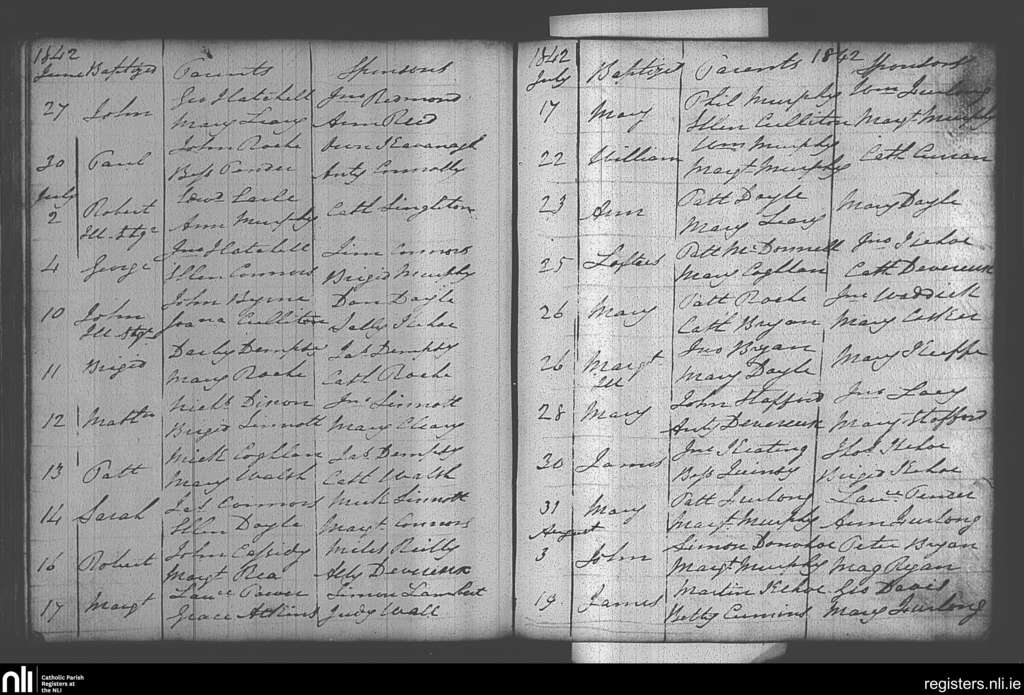 1842
June Baptized Parents Sponsors
27 John Geo Hatchell Jno Redmond
Mary Leary Ann Reid
30 Paul John Roche Owen Kavanagh
Bess Pender Anty Connolly
July
2 Robert Edwd Earle Cath Singleton
Ann Murphy
4 George Jno Hatchell Sim Connors
Ellen Connors Brigid Murphy
10 John John Byrne Dan Doyle
Joana Culliton Sally Kehoe
11 Brigid Darby Dempsy Jas Dempsy
Mary Roche Cath Roche
12 Matth Nichs Dixon Jno Sinnott
Brigid Sinnott Mary Cleary
13 Patt Mick Coghlan Jas Dempsy
Mary Walsh Cath Walsh
14 Sarah Jas Connors Mick Sinnott
Ellen Doyle Margt Connors
16 Robert John Cassidy Miles Reilly
Margt Rea Ally Devereux
17 Margt Laurce Power Simon Lambert
Grace Atkins Judy Wall
1842 1842
July Baptized Parents Sponsors
17 Mary Phil Murphy Wm Furlong
Ellen Culliton Margt Murphy
22 William Wm Murphy Cath Curran
Margt Murphy
23 Ann Patt Doyle Mary Doyle
Mary Leary
25 Loftus Patt McDonnell Jno Kehoe
Mary Coghlan Cath Devereux
26 Mary Patt Roche Jno Waddick
Cath Bryan Mary Cosker
26 Margt Jno Bryan Mary Keeffe
Ill Mary Doyle
28 Mary John Stafford Jno Lacy
Anty Devereux Mary Stafford
30 James Jno Keating Thos Kehoe
Bess Quinsy Brigid Kehoe
31 Mary Patt Furlong Laurce Pender
Margt Murphy Ann Furlong
August
3 John Simon Donohoe Peter Bryan
Margt Murphy Mag Ryan
19 James Martin Kehoe Geo Davis
Betty Cummins Mary Furlong
nli Catholic Parish
Registers at
the NLI
registers.nli.ie